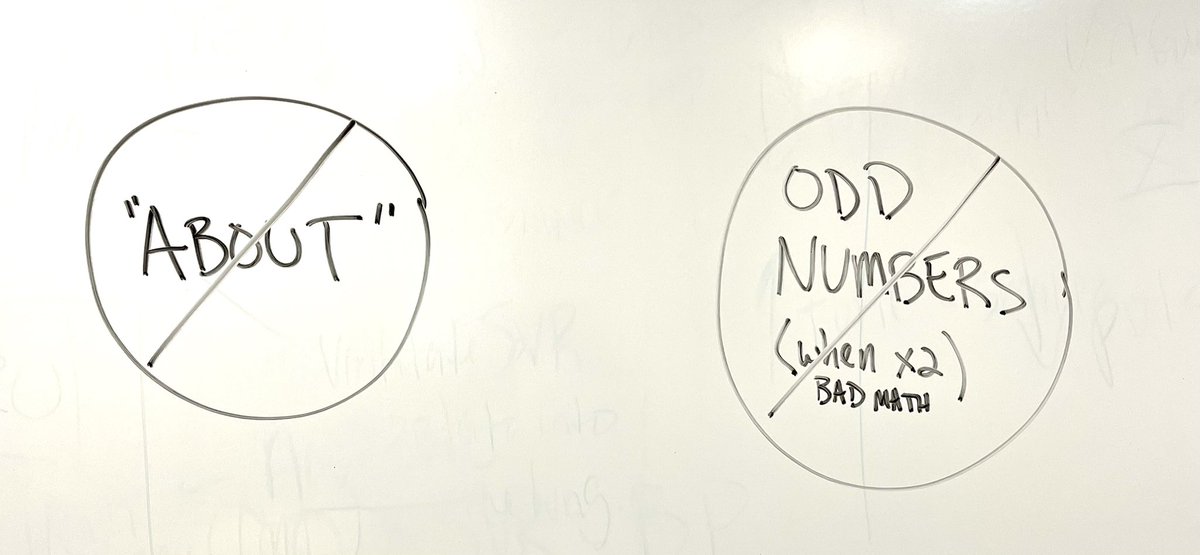 "ABOUT"
ODD
NUMBERS
(when x2)
BAD MATH